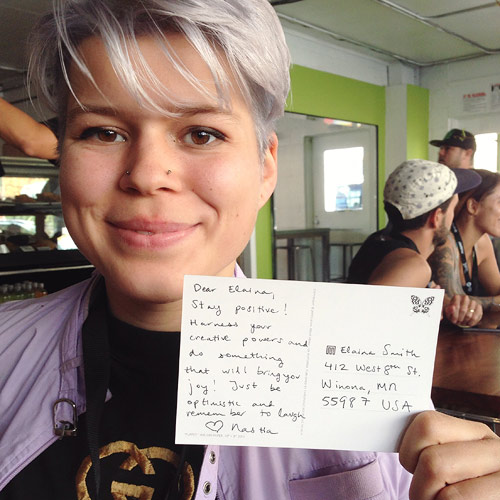 Dear Elaina,
Stay positive!
Harness your
creative powers and
do something
that will bring you
joy! Just be
optimistic and
remember to laugh
♡ Nastia
Elaine Smith
412 West 8th St.
Winona, MN
55987 USA